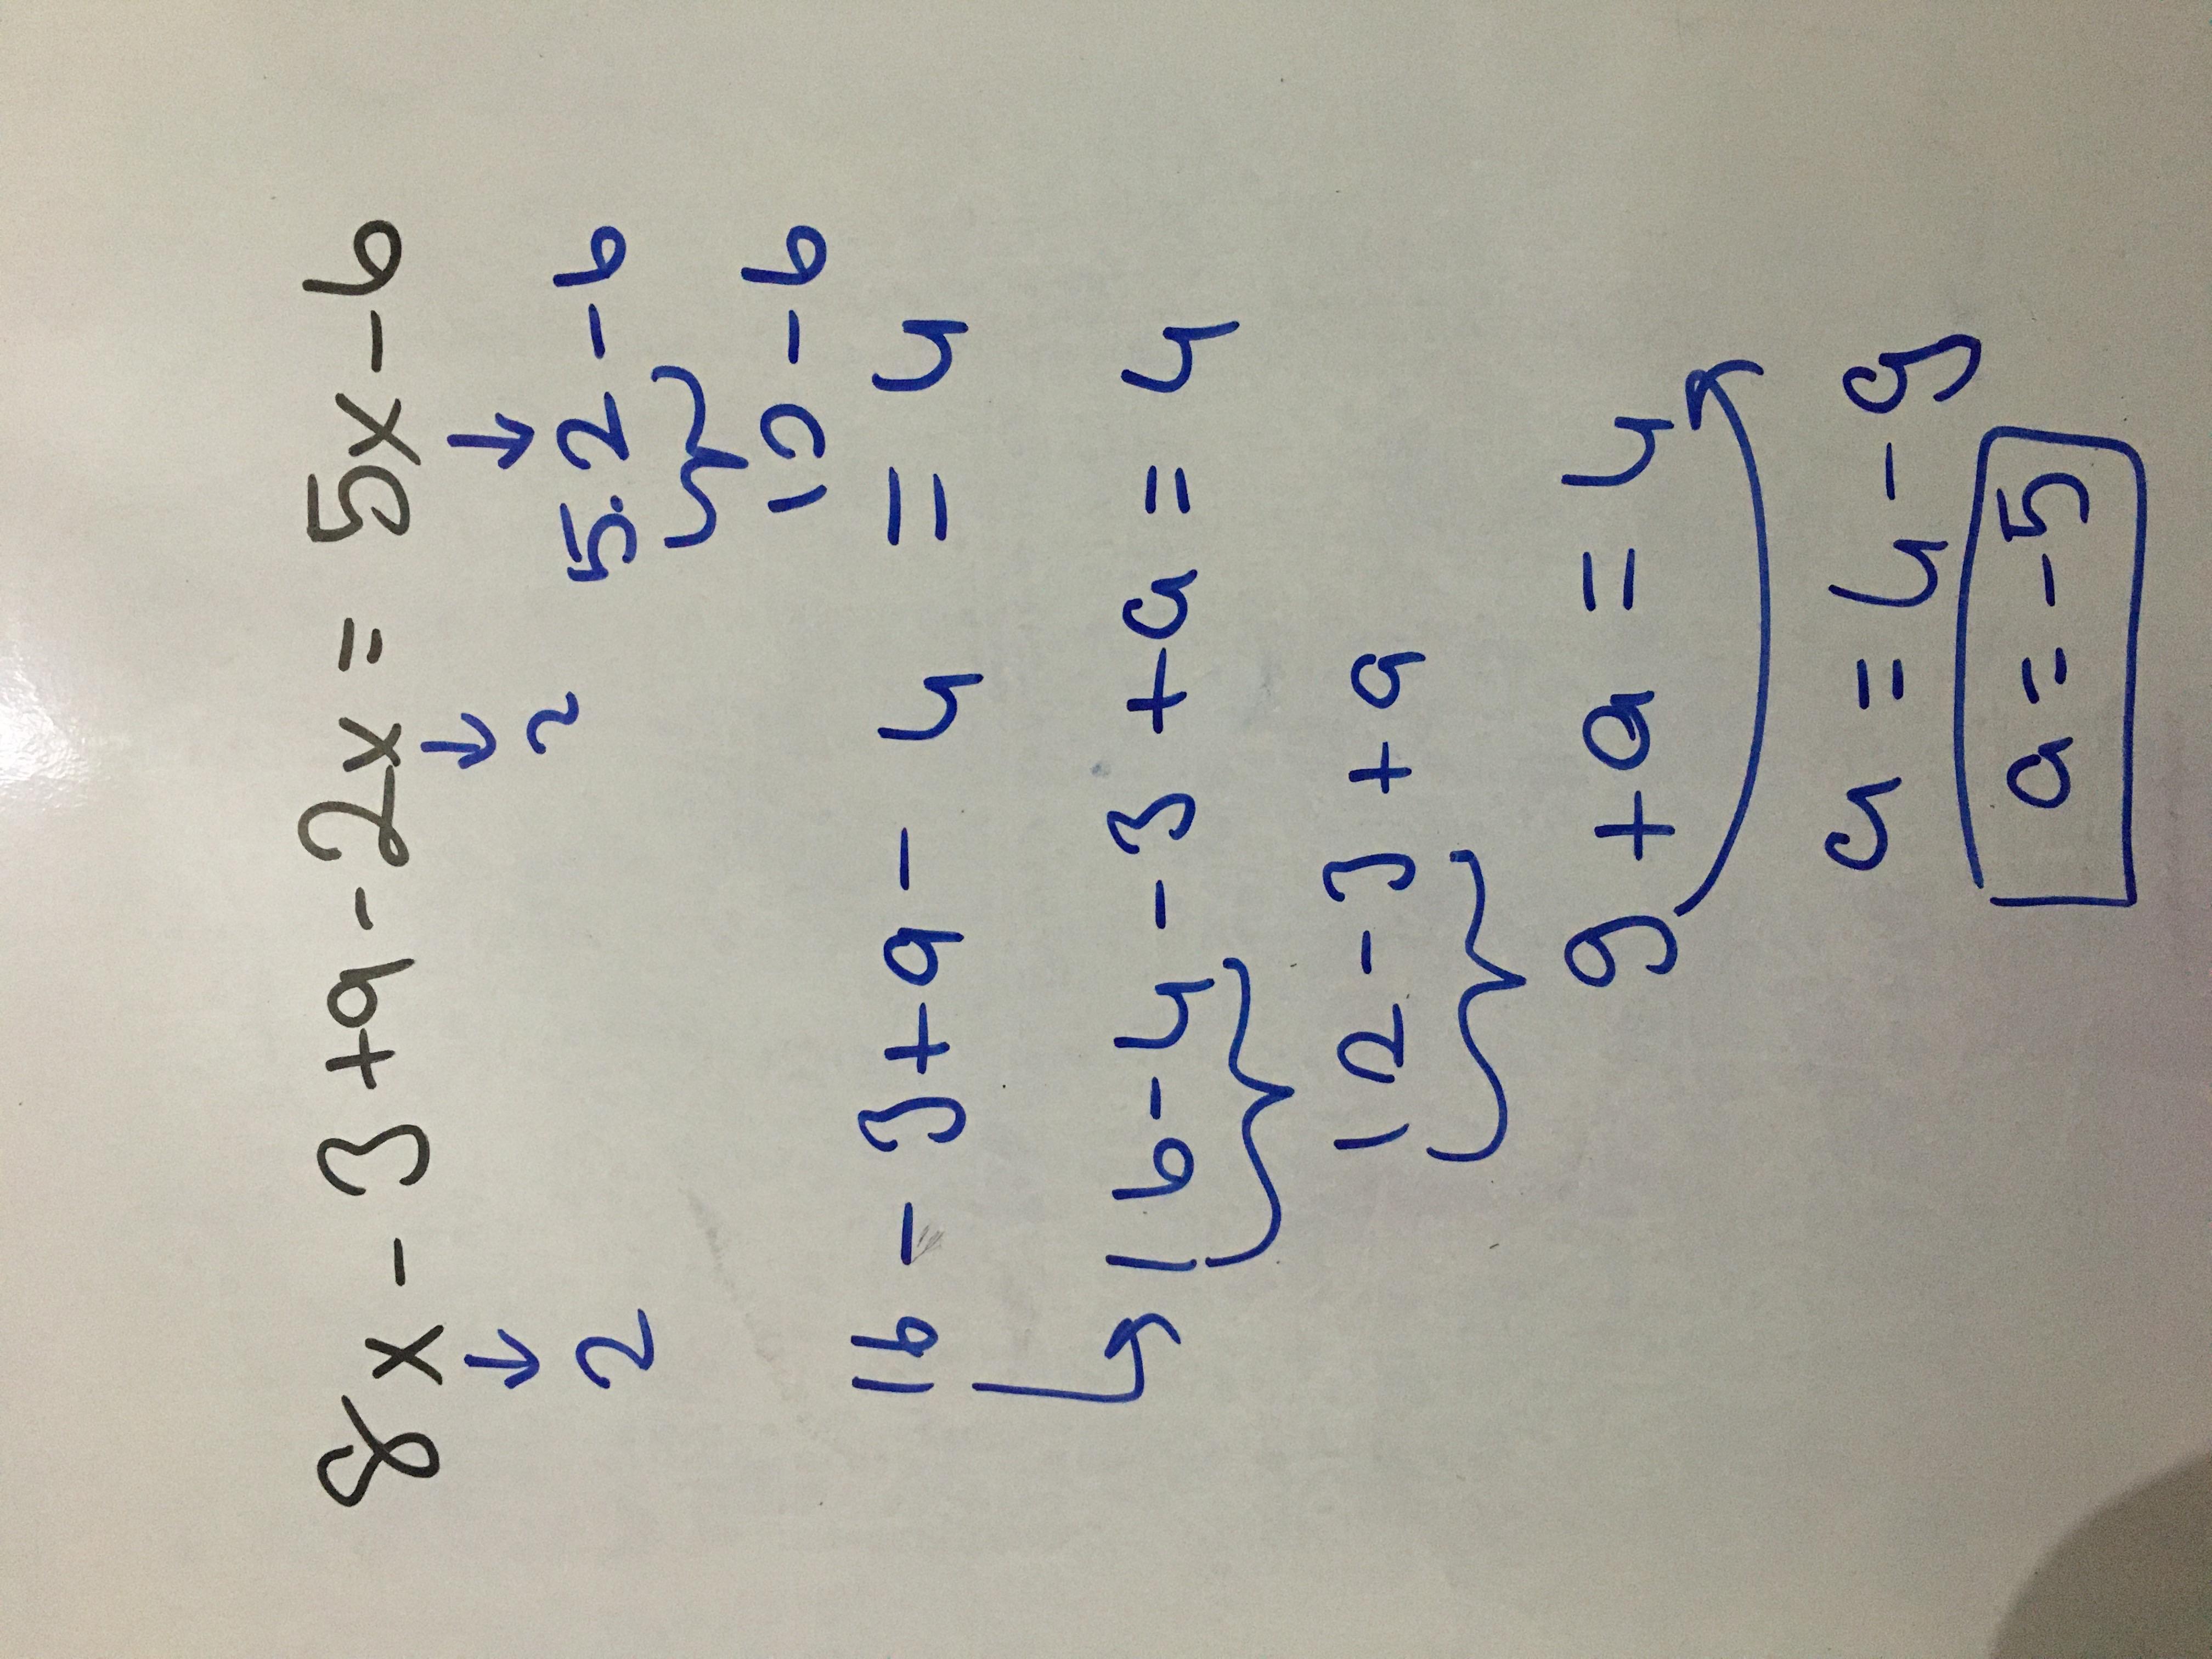 8x - 3 + a - 2x = 5x - 6
↓ ↓ ↓
2 2 5.2 - 6
10 - 6
16 - 3 + a - 4 = 4
↳ 16 - 4 - 3 + a = 4
12 - 3 + a
9 + a = 4
a = 4 - 9
a = -5